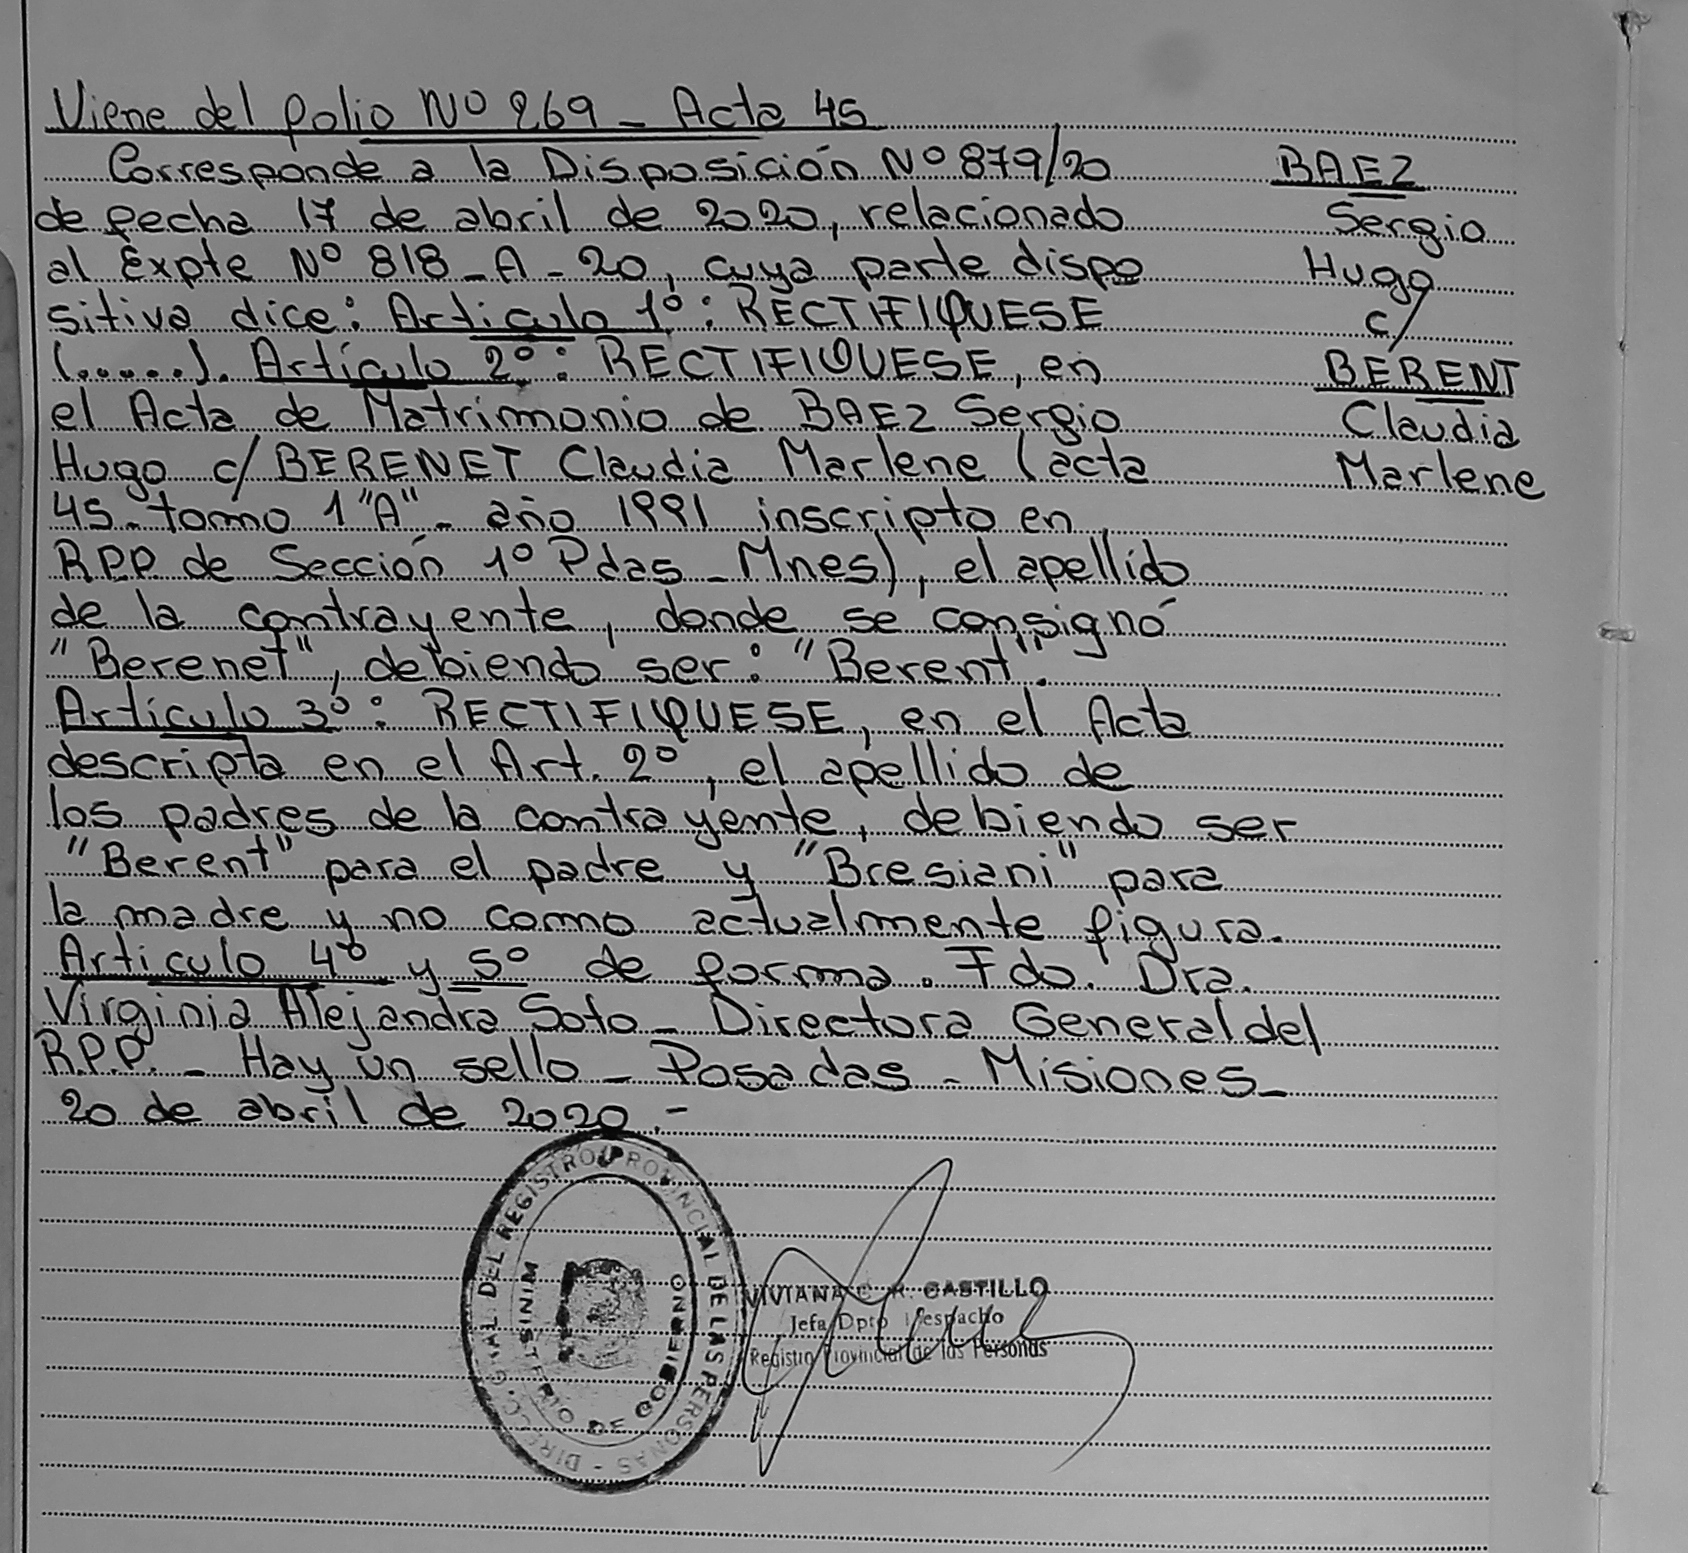 Viene del folio Nº 269 - Acta 45
Corresponde a la Disposición Nº 879/20
de fecha 17 de abril de 2020, relacionado
al Expte Nº 818-A-20, cuya parte dispo
sitiva dice: Artículo 1º: RECTIFIQUESE
(......). Artículo 2º: RECTIFIQUESE, en
el Acta de Matrimonio de BAEZ Sergio
Hugo c/ BERENET Claudia Marlene (acta
45- tomo 1 "A" - año 1991 inscripto en
RPP de Sección 1º Pdas - Mnes), el apellido
de la contrayente, donde se consignó
"Berenet", debiendo ser: "Berent".
Artículo 3º: RECTIFIQUESE, en el Acta
descripta en el Art. 2º, el apellido de
los padres de la contrayente, debiendo ser
"Berent" para el padre y "Bresiani" para
la madre y no como actualmente figura.
Artículo 4º y 5º de forma. Fdo. Dra.
Virginia Alejandra Soto - Directora General del
R.P.P. - Hay un sello - Posadas - Misiones -
20 de abril de 2020.-
BAEZ
Sergio
Hugo
c/
BERENT
Claudia
Marlene
DIRECC. GRAL. DEL REGISTRO PROVINCIAL DE LAS PERSONAS -
MINISTERIO DE GOBIERNO
VIVIANA R. CASTILLO
Jefa Dpto Despacho
Registro Provincial de las Personas